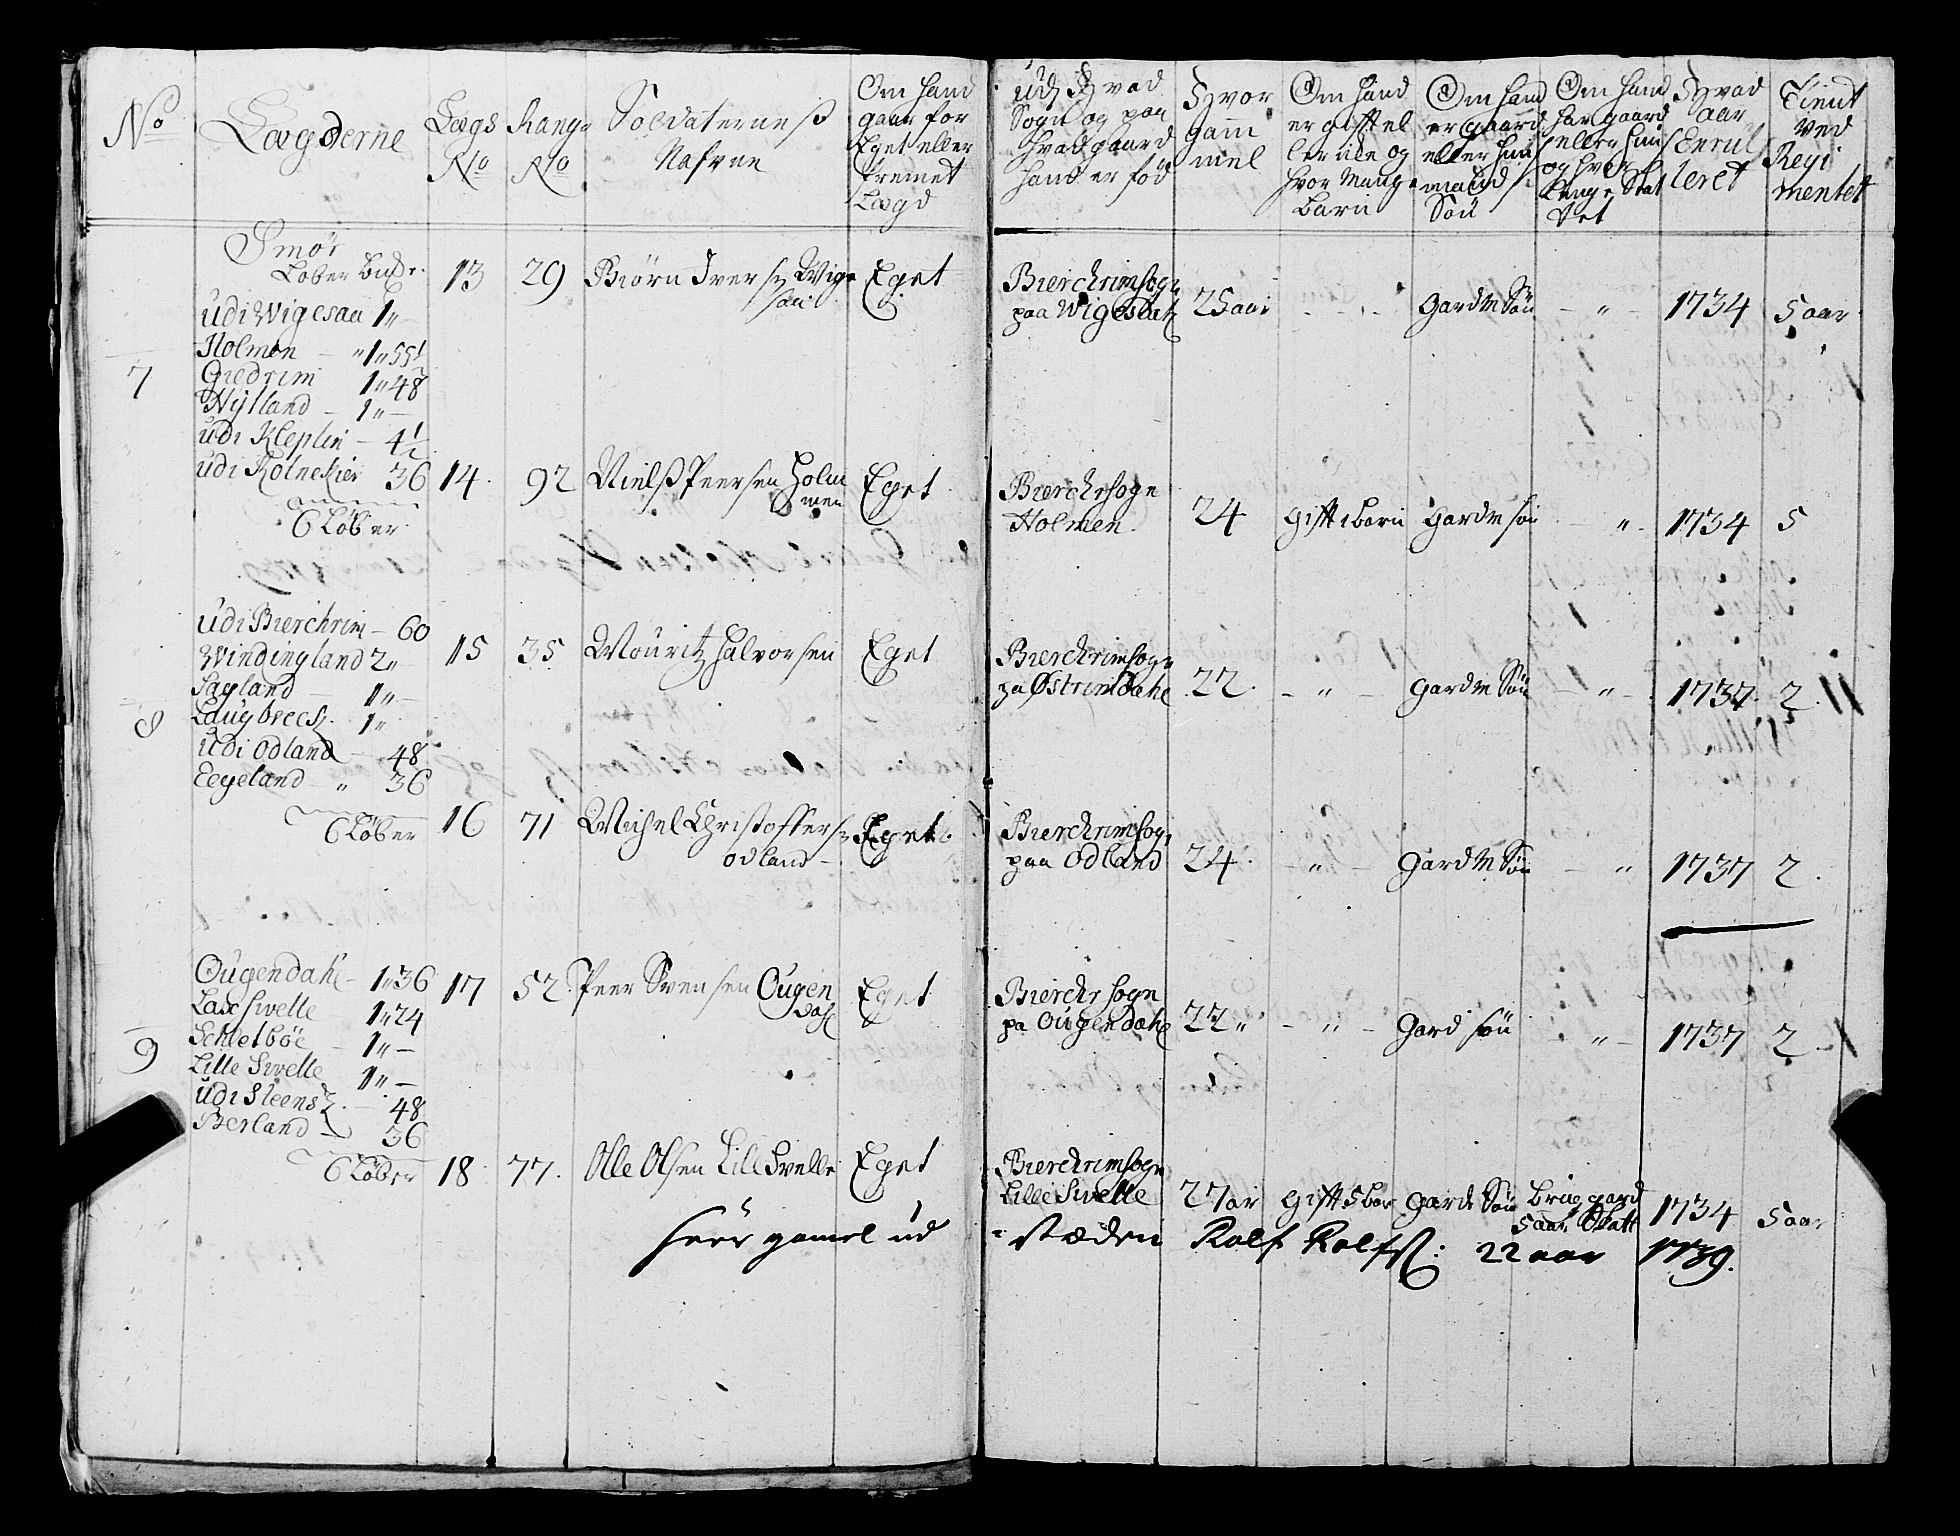 No
Lægderne
Lægs No
Rangs No
Soldaterneß Nafvne
Om hand
gaar for
Eget eller
fremet
Lægd
udj Hvad
Sogn og paa
hvad gaard
hand er fød
Hvor
gam
mel
Om hand
er gifft el
ler eie og
hvor Mange
barn
Om hand
er gaard
eller huus
mands
Søn
Om hand
har gaard
eller huus
og hvor
lenge Stat
Vet
Hvad
aar
Enrul
leret
Tient
Ved
Regi
mentet
Smør
Løber buxr.
7
udi Wigesaa 1 „ –
Holmen – „ 1 „ 55½
Giedrim 1 „ 48
Hylland – 1 „ –
udi Kleplin – 4½
udi Rolneskier 36
6 Løber
13 29 Biørn Iversz Wige
saa
Eget
Bierchrimsogn
paa Wigeslat
25 aar
Gardm Søn – „ – 1734 5 aar
14 92 Nielß Peersen Holm
men
Eget
Bierchrsogn
Holmen
24 gifft 1 barn gardm søn „ 1734 5
8
udi Bierchrim – 60
Windingland 2 „
Sagland – 1 „ –
Laugbreesz 1 „
udi Odland – 48
Eegeland – „ 36
6 Løber
15 35 Mouritz Halvorsen Eget
Bierchrimsogn
pa Østrimdahl
22 – „ – gardm Søn – „ – 1737 2
16 71 Michel Christoffersz
Odland –
Eget
Bierchrimsogn
paa Odland
24 – „ – Gardm Søn – „ 1737 2
9
Ougendahl – 1 „ 36
Laxswelle 1 „ 24
Schletbøe – 1 „ –
Lille Swelle 1 „ –
udi Steensz – 48
Berland – 36
6 Løber
17 52 Peer Svensen Ougen
dahl
Eget
Bierchrsogn
pa Ougendahl
22 „ – „ – Gard søn „ – 1737 2
18 77 Olle Olsen Lille Svelle Eget
Bierchrimsogn
Lille Swelle
27 ar gifft 5 bar garde Søn
Brug gard
5 aar Statt
1734 5 aar
for gamel ud
i Stæden Rolf Rolfs: 22 aar 1739.